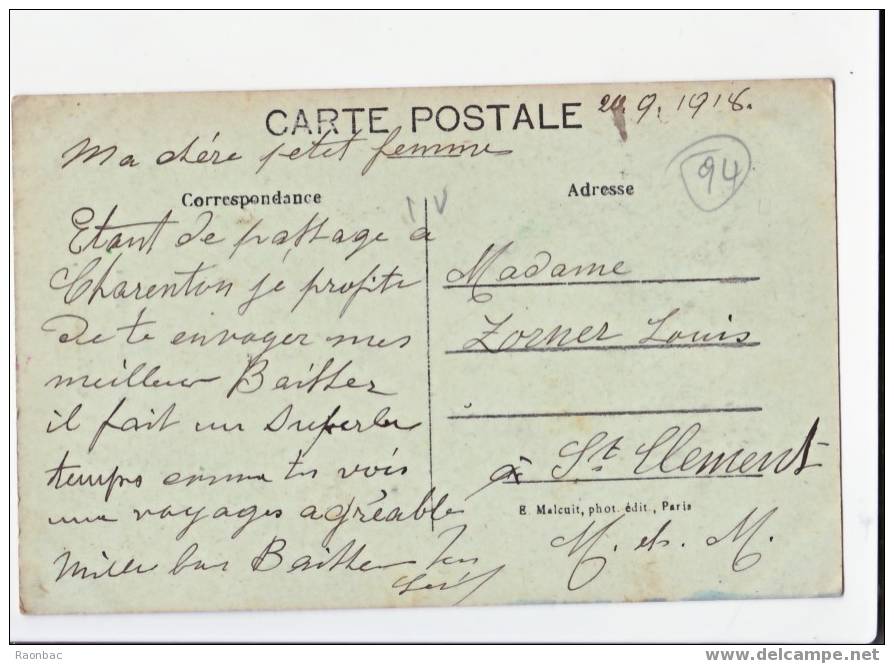 CARTE POSTALE
20.9.1918.
Ma chére petit femme
94
Correspondance
Adresse
Etant de passage a
Charenton je profite
de te envoyer mes
meilleur Baisser
il fait un superbe
temps comme tu vois
une voyages agréable
Mille bon Baisser ton
Madame
Zorner Louis
à St. Clement
E. Malcuit, phot. édit., Paris
M. et. M.
Raonbac
www.delcampe.net